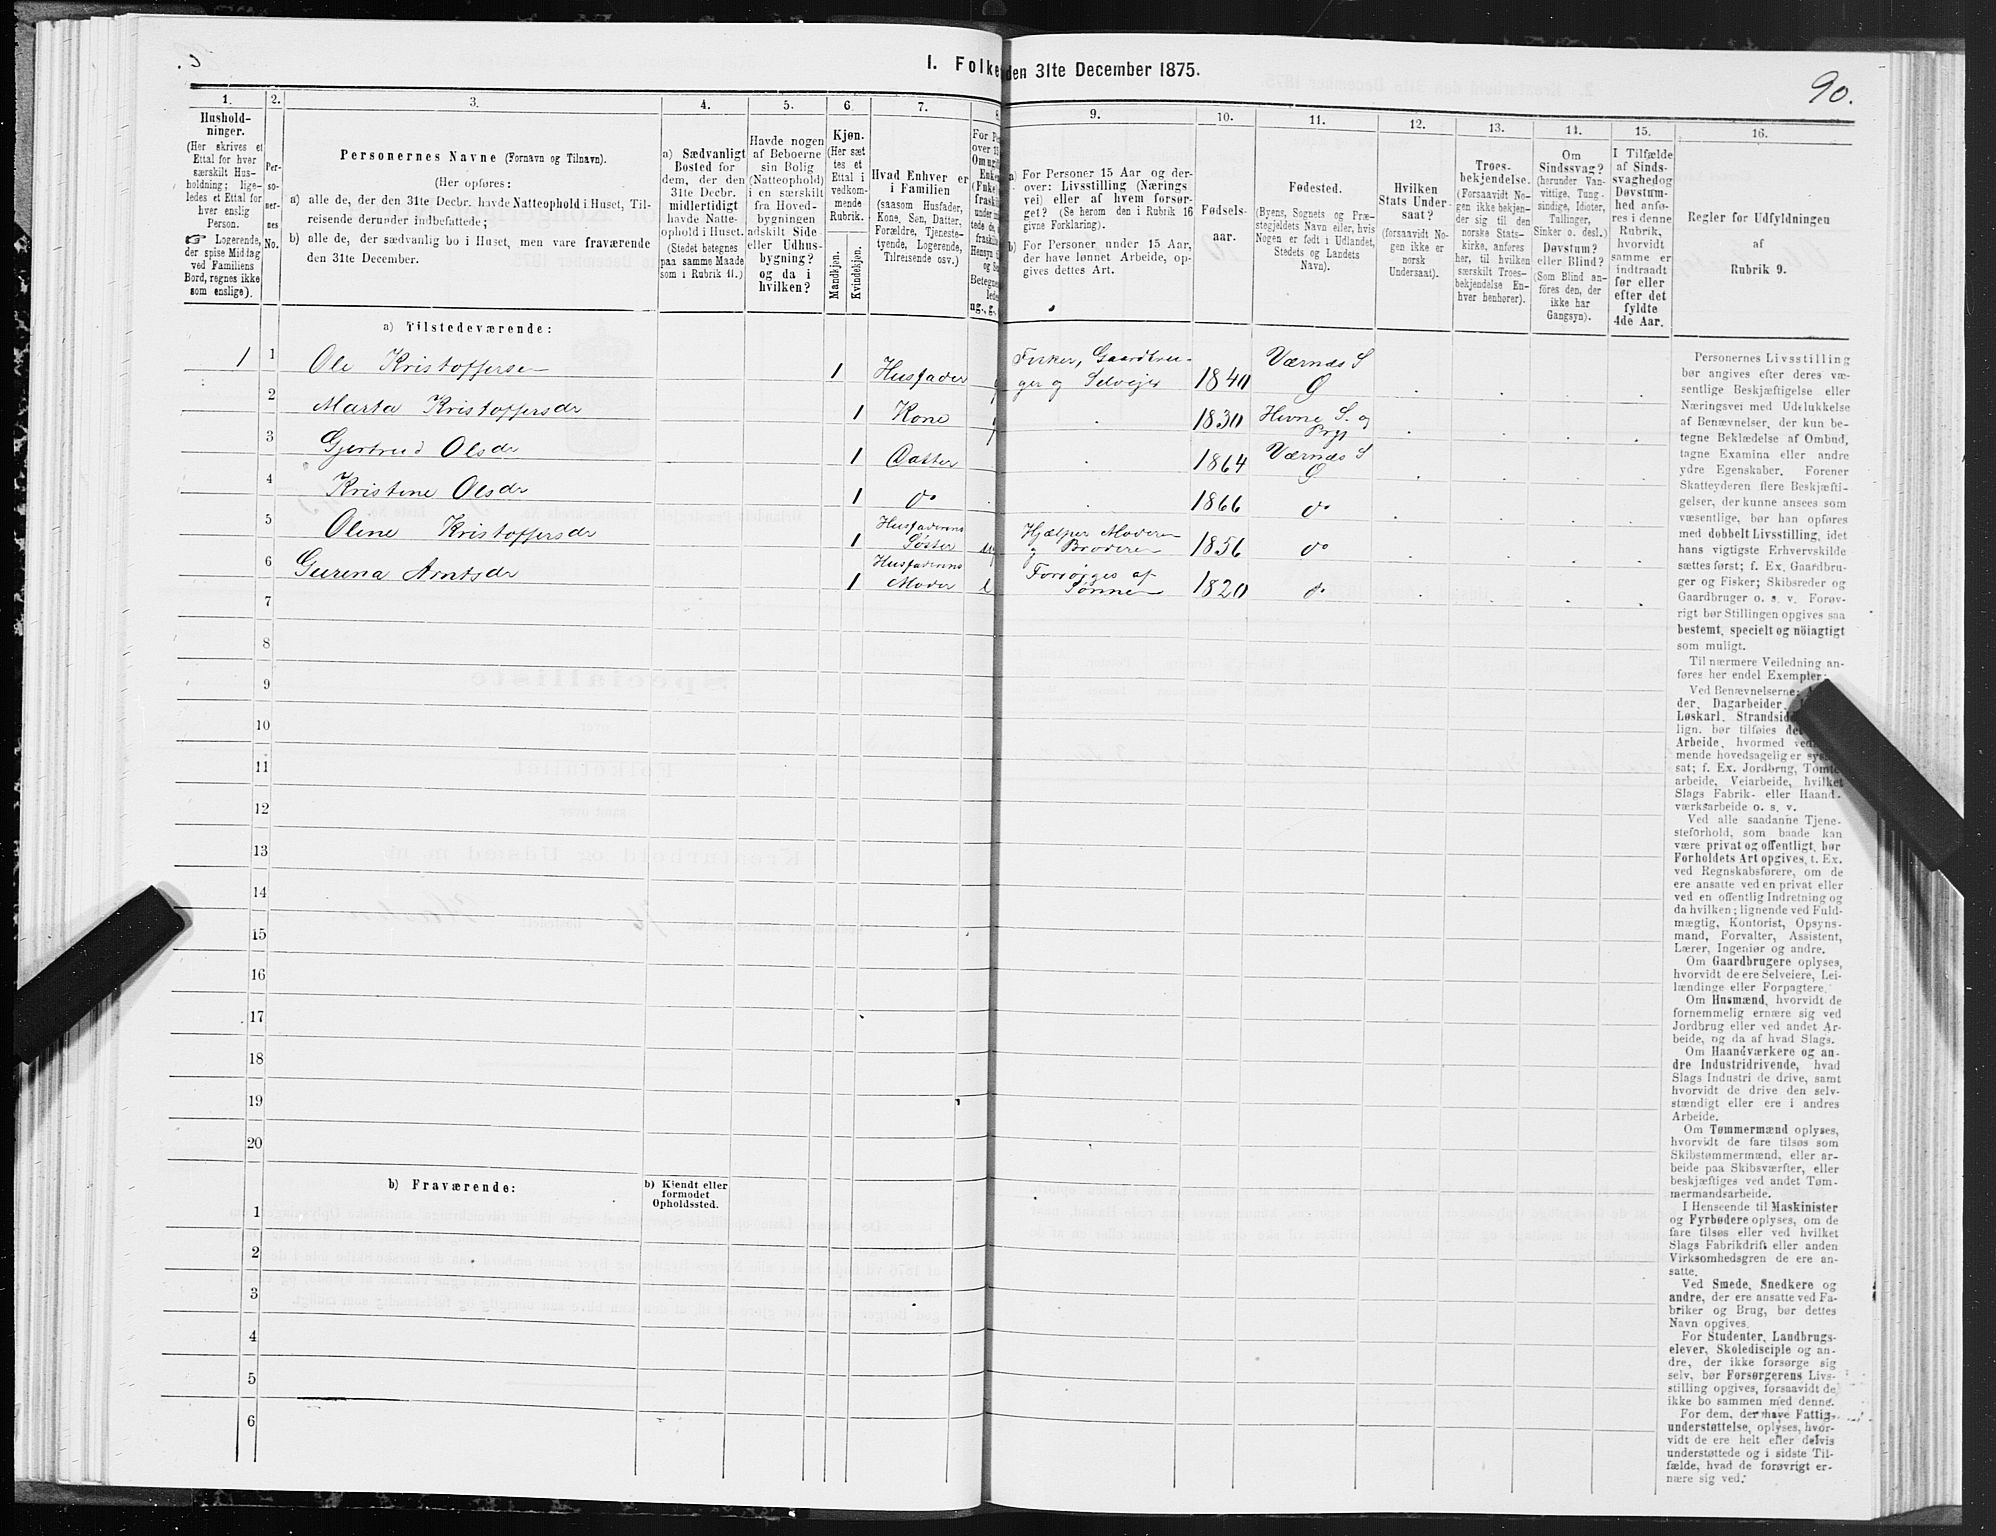 I. Folke den 31te December 1875.
90.
1.
Hushold-
ninger.
(Her skrives et
Ettal for hver
særskilt Hus-
holdning; lige-
ledes et Ettal for
hver enslig
Person.
☞ Logerende,
der spise Middag
ved Familiens
Bord, regnes ikke
som enslige).
2.
Per-
so-
ner-
nes
No.
3.
Personernes Navne (Fornavn og Tilnavn).
(Her opføres:
a) alle de, der den 31te Decbr. havde Natteophold i Huset, Til-
reisende derunder indbefattede;
b) alle de, der sædvanlig bo i Huset, men vare fraværende
den 31te December.
4.
a) Sædvanligt
Bosted for
dem, der den
31te Decbr.
midlertidigt
havde Natte-
ophold i Huset.
(Stedet betegnes
paa samme Maade
som i Rubrik 11.)
5.
Havde nogen
af Beboerne
sin Bolig
(Natteophold)
i en særskilt
fra Hoved-
bygningen
adskilt Side-
eller Udhus-
bygning?
og da i
hvilken?
6.
Kjøn.
(Her sæt
tes et
Ettal i
vedkom-
mende
Rubrik.
Mandkjøn.
Kvindekjøn.
7.
Hvad Enhver er
i Familien
(saasom Husfader,
Kone, Søn, Datter,
Forældre, Tjeneste-
tyende, Logerende,
Tilreisende osv.)
8.
9.
a) For Personer 15 Aar og der-
over: Livsstilling (Nærings
vei) eller af hvem forsør-
get? (Se herom den i Rubrik 16
givne Forklaring).
b) For Personer under 15 Aar,
der have lønnet Arbeide, op-
gives dettes Art.
10.
Fødsels-
aar.
11.
Fødested.
(Byens, Sognets og Præ-
stegjeldets Navn eller, hvis
Nogen er født i Udlandet,
Stedets og Landets
Navn).
12.
Hvilken
Stats Under-
saat?
(forsaavidt No-
gen ikke er
norsk
Undersaat).
13.
Troes-
bekjendelse.
(Forsaavidt No-
gen ikke bekjen-
der sig til den
norske Stats-
kirke, anføres
her, til hvilken
særskilt Troes-
bekjendelse En-
hver henhører).
14.
Om
Sindssvag?
(herunder Van-
vittige, Tung-
sindige, Idioter,
Tullinger,
Sinker o. desl.)
Døvstum?
eller Blind?
(Som Blind an-
føres den, der
ikke har
Gangsyn).
15.
I Tilfælde
af Sinds-
svaghed og
Døvstum-
hed anfø-
res i denne
Rubrik,
hvorvidt
samme er
indtraadt
før eller
efter det
fyldte
4de Aar.
16.
Regler for Udfyldningen
af
Rubrik 9.
a) Tilstedeværende:
1 1 Ole Kristoffersen 1 Husfader g Fisker, Gaardbru-
ger og Selveier 1840 Værnæs S
2 Marta Kristoffersdr 1 Kone 1830 Hevne S. og
Prgj
3 Gjertrud Olsdr 1 Datter 1864 Værnæs S
4 Kristine Olsdr 1 do 1866 do
5 Oline Kristoffersdr 1 Husfaderens
Søster ug Hjælper Moderen
og Broderen 1856 do
6 Gurina Arntsdr 1 Husfaderens
Moder e Forsørges af
Sønnen 1820 do
7
8
9
10
11
12
13
14
15
16
17
18
19
20
b) Fraværende:
b) Kjendt eller
formodet
Opholdssted.
1
2
3
4
5
6
Personernes Livsstilling
bør angives efter deres væ-
sentlige Beskjæftigelse eller
Næringsvei med Udelukkelse
af Benævnelser, der kun be-
tegne Beklædelse af Ombud,
tagne Examina eller andre
ydre Egenskaber. Forener
Skatteyderen flere Beskjæfti-
gelser, der kunne ansees som
væsentlige, bør han opføres
med dobbelt Livsstilling, idet
hans vigtigste Erhvervskilde
sættes først; f. Ex. Gaardbru-
ger og Fisker; Skibsreder og
Gaardbruger o. s. v. Forøv-
rigt bør Stillingen opgives saa
bestemt, specielt og nöiagtigt
som muligt.
Til nærmere Veiledning an-
føres her endel Exempler:
Ved Benævnelserne:
der, Dagarbeider,
Løskarl, Strandsid
lign. bør tilføies de
Arbeide, hvormed ved
mende hovedsagelig er sys
sat; f. Ex. Jordbrug, Tomte-
arbeide, Veiarbeide, hvilket
Slags Fabrik- eller Haand-
værksarbeide o. s. v.
Ved alle saadanne Tjene-
steforhold, som baade kan
være privat og offentligt, bør
Forholdets Art opgives, t. Ex.
ved Regnskabsførere, om de
ere ansatte ved en privat eller
ved en offentlig Indretning og
da hvilken; lignende ved Fuld-
mægtig, Kontorist, Opsyns-
mand, Forvalter, Assistent,
Lærer, Ingeniør og andre.
Om Gaardbrugere oplyses,
hvorvidt de ere Selveiere, Lei-
lændinge eller Forpagtere.
Om Husmænd, hvorvidt de
fornemmelig ernære sig ved
Jordbrug eller ved andet Ar-
beide, og da af hvad Slags.
Om Haandværkere og an-
dre Industridrivende, hvad
Slags Industri de drive, samt
hvorvidt de drive den selv-
stændigt eller ere i andres
Arbeide.
Om Tømmermænd oplyses,
hvorvidt de fare tilsøs som
Skibstømmermænd, eller ar-
beide paa Skibsværfter, eller
beskjæftiges ved andet Tøm-
mermandsarbeide.
I Henseende til Maskinister
og Fyrbødere oplyses, om de
fare tilsøs eller ved hvilket
Slags Fabrikdrift eller anden
Virksomhedsgren de ere an-
satte.
Ved Smede, Snedkere og
andre, der ere ansatte ved Fa-
briker og Brug, bør dettes
Navn opgives.
For Studenter, Landbrugs-
elever, Skoledisciple og an-
dre, der ikke forsørge sig
selv, bør Forsørgerens Livs-
stilling opgives, forsaavidt de
ikke bo sammen med denne.
For dem, der have Fattig-
understøttelse, oplyses, hvor-
vidt de ere helt eller delvis
understøttede og i sidste Til-
fælde, hvad de forøvrigt er-
nære sig ved.